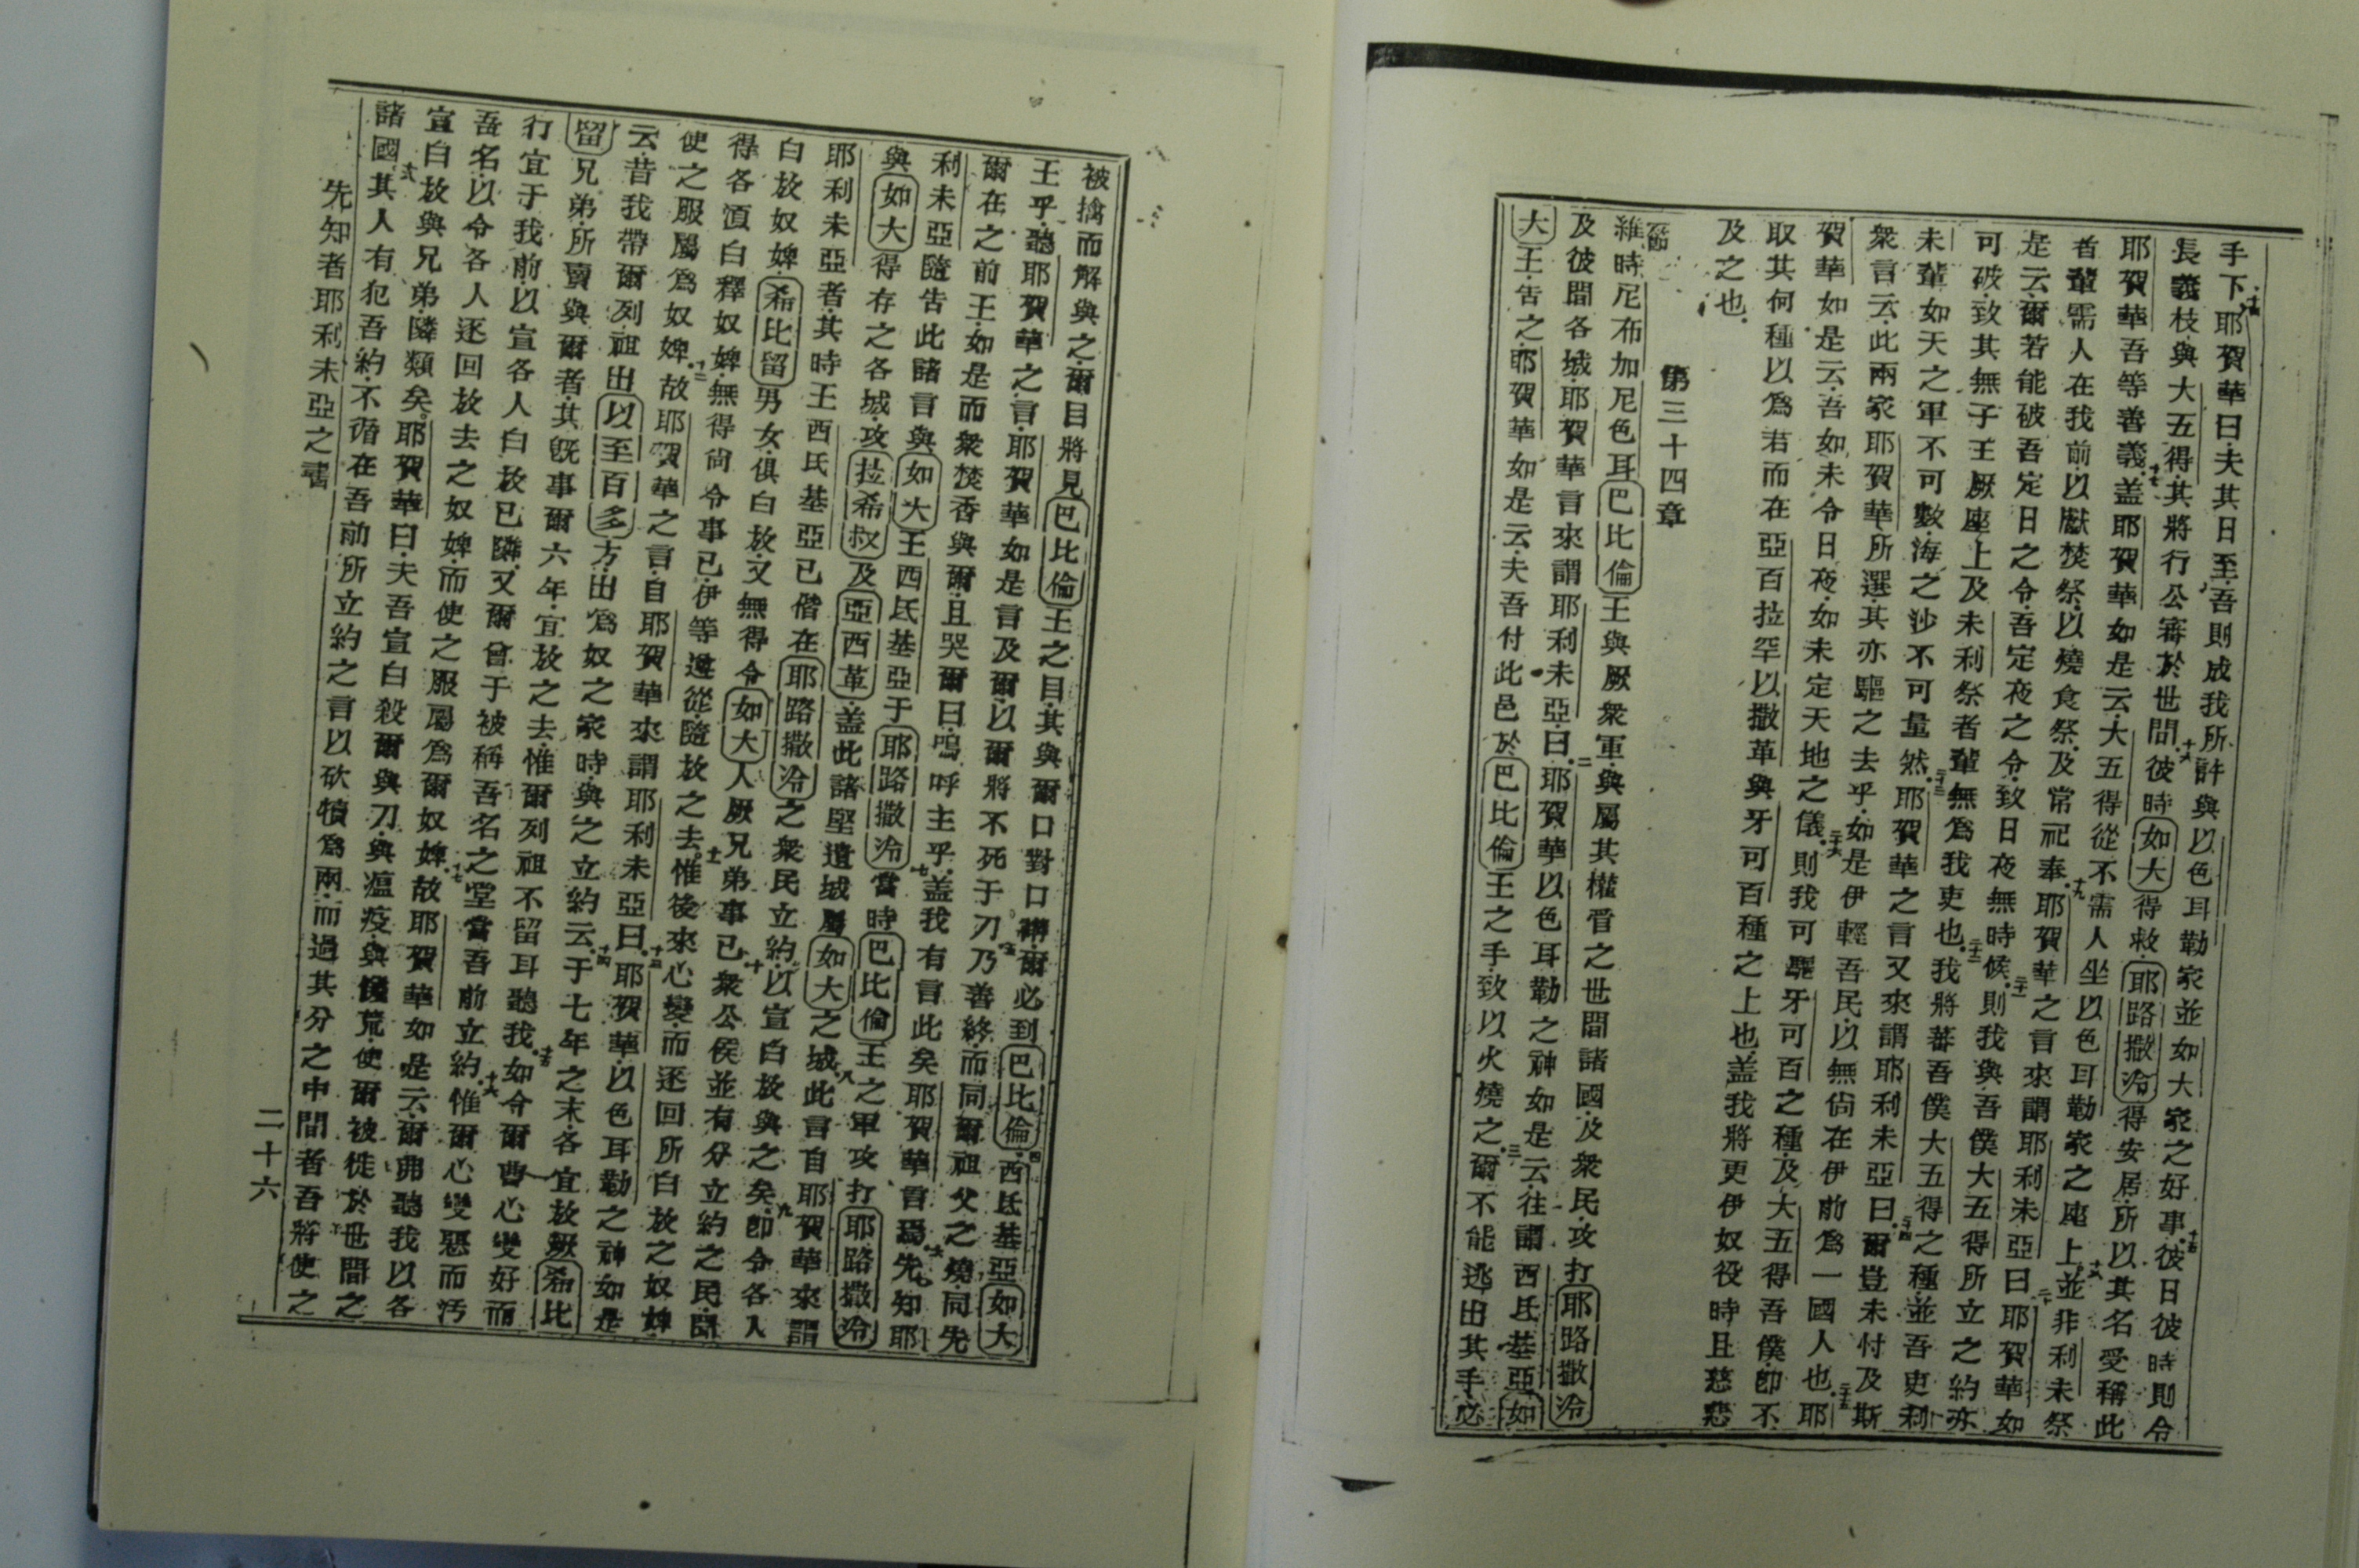 手下十四耶賀華曰夫其日至吾則成我所許與以色耳勒家並如大家之好事十五彼日彼時則令
長義枝與大五得其將行公審於世間十六彼時如大得救耶路撒冷得安居所以其名受稱此
耶賀華吾等善義十七盖耶賀華如是云大五得從不需人坐以色耳勒家之座上十八並非利未祭
者輩需人在我前以獻焚祭以燒食祭及常祀奉十九耶賀華之言來謂耶利未亞曰二十耶賀華如
是云爾若能破吾定日之令吾定夜之令致日夜無時候二十一則我與吾僕大五得所立之約亦
可破致其無子王厥座上及未利祭者輩無為我吏也二十二我將蕃吾僕大五得之種並吾吏利
未輩如天之軍不可數海之沙不可量然二十三耶賀華之言又來謂耶利未亞曰二十四爾豈未忖及斯
衆言云此兩家耶賀華所選其亦驅之去乎如是伊輕吾民以無尙在伊前為一國人也二十五耶
賀華如是云吾如未令日夜如未定天地之儀二十六則我可驅牙可百之種及大五得吾僕卽不
取其何種以為君而在亞百拉罕以撒革與牙可百種之上也盖我將更伊奴役時且慈悲
及之也
第三十四章
維時尼布加尼色耳巴比倫王與厥衆軍與屬其權管之世間諸國及衆民攻打耶路撒冷
及彼間各城耶賀華言來謂耶利未亞曰二耶賀華以色耳勒之神如是云往謂西氐基亞如
大王吿之耶賀華如是云夫吾付此邑於巴比倫王之手致以火燒之三爾不能逃出其手必
被擒而解與之爾目將見巴比倫王之目其與爾口對口講爾必到巴比倫四西氐基亞如大
王乎聽耶賀華之言耶賀華如是言及爾以爾將不死于刀五乃善終而同爾祖父之燒同先
爾在之前王如是而衆焚香與爾且哭爾曰嗚呼主乎盖我有言此矣耶賀華言焉六先知耶
利未亞隨吿此諸言與如大王西氐基亞于耶路撒冷七當時巴比倫王之軍攻打耶路撒冷
與如大得存之各城攻拉希叔及亞西革盖此諸堅遺城屬如大之城八此言自耶賀華來謂
耶利未亞者其時王西氐基亞已偕在耶路撒冷之衆民立約以宣白放與之矣九卽令各人
白放奴婢希比留男女俱白放又無得令如大人厥兄弟事已十衆公侯並有分立約之民聞
得各須白釋奴婢無得尙令事已伊等遵從隨放之去十一惟後來心變而逐回所白放之奴婢
使之服屬為奴婢十二故耶賀華之言自耶賀華來謂耶利未亞曰十三耶賀華以色耳勒之神如是
云昔我帶爾列祖出以至百多方出為奴之家時與之立約云十四于七年之末各宜放厥希比
留兄弟所賣與爾者其旣事爾六年宜放之去惟爾列祖不留耳聽我十五如今爾曹心變好而
行宜于我前以宣各人白放已隣又爾曾于被稱吾名之堂當吾前立約十六惟爾心變惡而汚
吾名以令各人逐回放去之奴婢而使之服屬為爾奴婢十七故耶賀華如是云爾弗聽我以各
宣白放與兄弟隣類矣耶賀華曰夫吾宣白殺爾與刀與瘟疫與饑荒使爾被徙於世間之
諸國十八其人有犯吾約不循在吾前所立約之言以砍犢為兩而過其分之中間者吾將使之
先知者耶利未亞之書
二十六